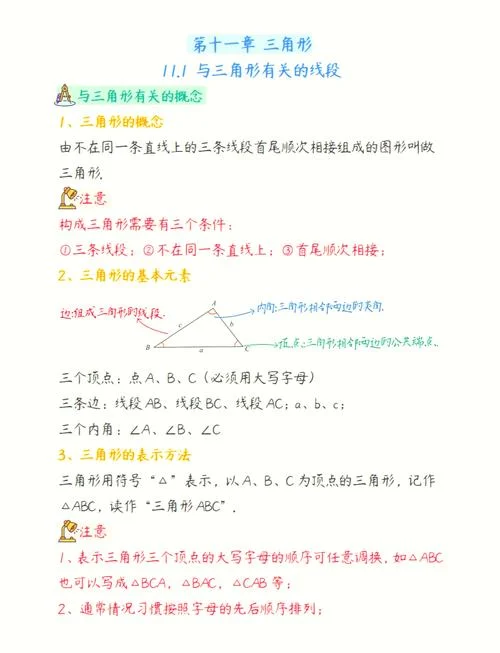 第十一章 三角形
11.1 与三角形有关的线段
与三角形有关的概念
1、三角形的概念
由不在同一条直线上的三条线段首尾顺次相接组成的图形叫做
三角形.
注意
构成三角形需要有三个条件：
①三条线段；②不在同一条直线上；③首尾顺次相接；
2、三角形的基本元素
边:组成三角形的线段.
A
内角:三角形相邻两边的夹角.
c
b
B
a
C
顶点:三角形相邻两边的公共端点.
三个顶点：点A、B、C（必须用大写字母）
三条边：线段AB、线段BC、线段AC；a、b、c；
三个内角：∠A、∠B、∠C
3、三角形的表示方法
三角形用符号“△”表示，以A、B、C为顶点的三角形，记作
△ABC，读作“三角形ABC”.
注意
1、表示三角形三个顶点的大写字母的顺序可任意调换，如△ABC
也可以写成△BCA，△BAC，△CAB等；
2、通常情况习惯按照字母的先后顺序排列；